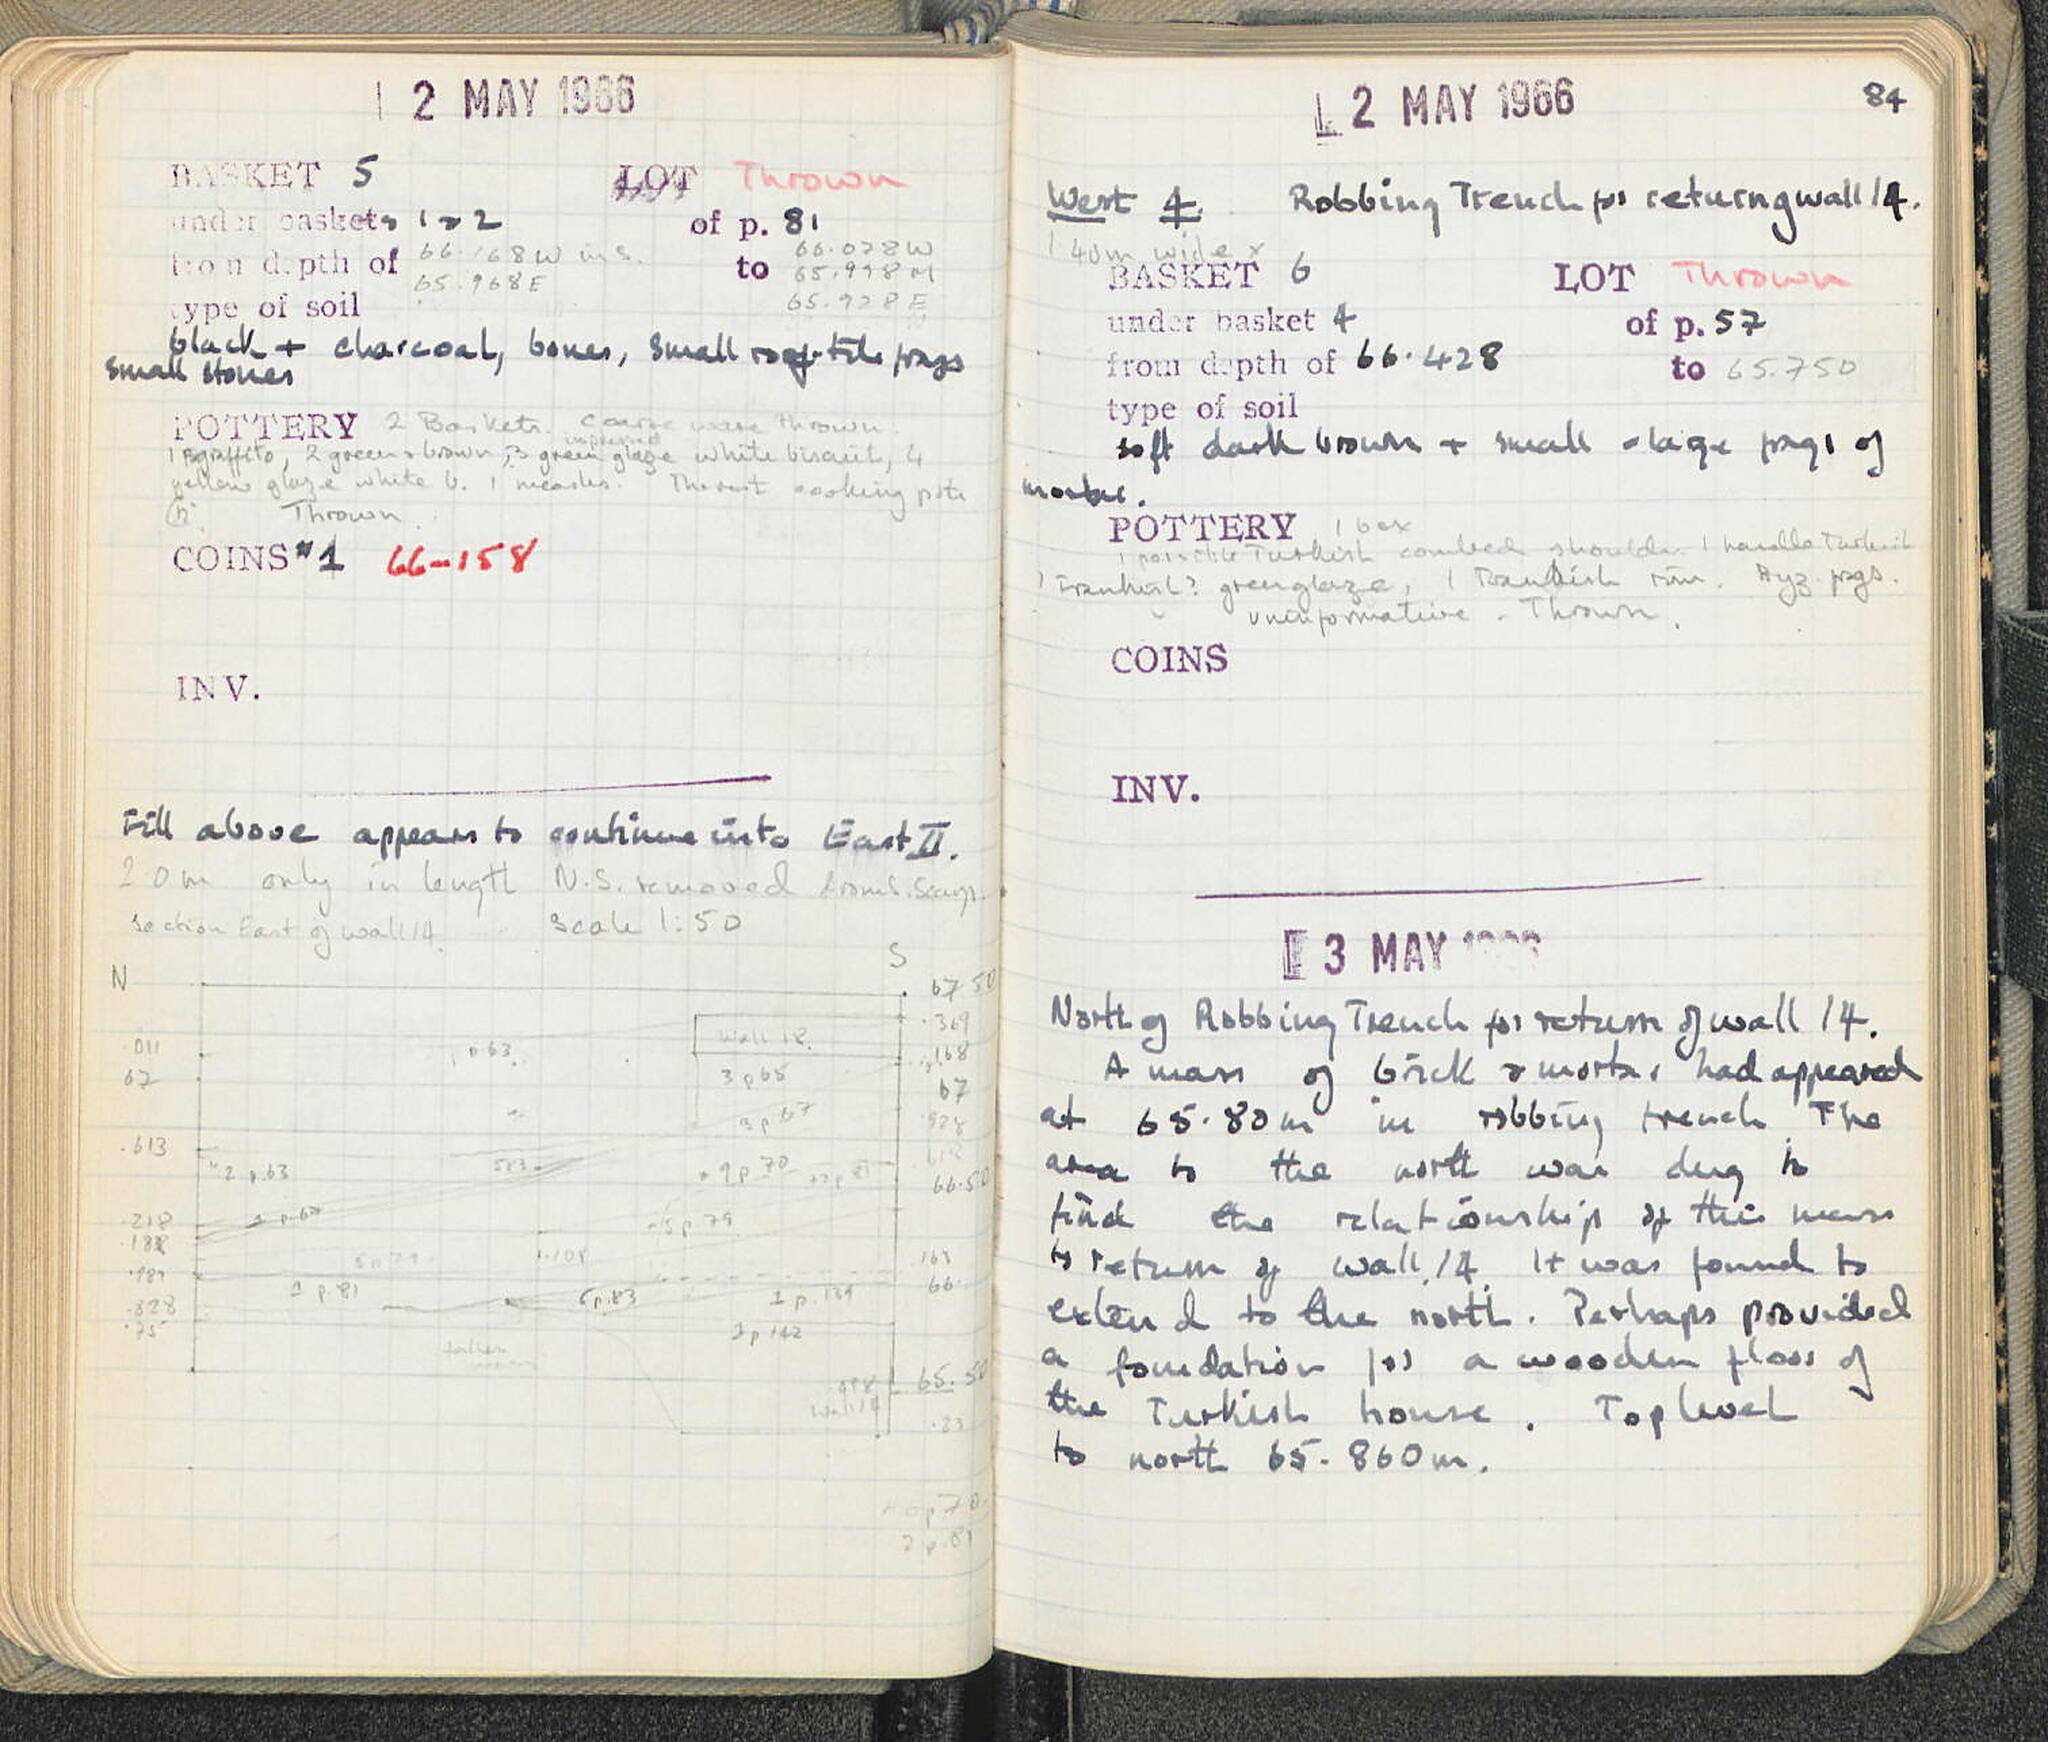 2 MAY 1966
BASKET 5 LOT Thrown
under baskets 1 + 2 of p. 81
from depth of 66.168W in S. to 66.078W
65.968E 65.998M
type of soil 65.928E
black + charcoal, bones, small roof-tile frags
small stones
POTTERY 2 Baskets. Coarse ware thrown
impressed
1 sgraffito, 2 green & brown, 3 green glaze white biscuit, 4
yellow glaze white b. The rest cooking pots
Thrown
COINS #1 66-158
INV.
Fill above appears to continue into East II.
20m only in length N.S. removed from S. Scarp.
Section East of wall 14. Scale 1:50
N S
67.50
.369
.011 p.63 Wall 18. .168
67 3 p 65 67
3 p 67 .928
.613 618
2 p.63 583 + 9 p 70 66.50
.218 p. 67 5 p. 79
5 p 79 1.108 168
1 p. 81 5 p. 83 1 p. 139 66.
.828
.75 1 p 142
fallen
65.50
wall 14
.23
6 p 70.
2 p. 81
2 MAY 1966 84
West 4. Robbing Trench for return g wall 14.
1 40m wide x
BASKET 6 LOT Thrown
under basket 4 of p. 57
from depth of 66.428 to 65.750
type of soil
soft dark brown + small - large frags of
mortar.
POTTERY 1 box
1 possible Turkish combed shoulder. 1 handle Turkish
1 Frankish? green glaze, 1 Frankish rim. Byz. frags.
uninformative. Thrown.
COINS
INV.
3 MAY 1966
North of Robbing Trench for return of wall 14.
A mass of brick & mortar had appeared
at 65.80m in robbing trench The
area to the north was dug to
find the relationship of this mass
to return of wall 14. It was found to
extend to the north. Perhaps provided
a foundation for a wooden floor of
the Turkish house. Top level
to north 65.860m.